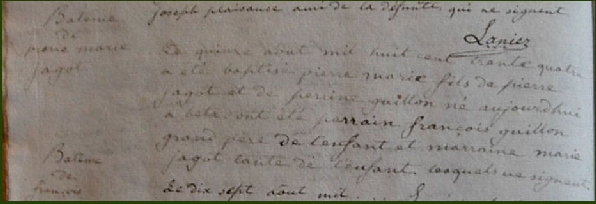 joseph plaisance ami de la défunte qui ne signent
Laniez
Batême
de
pierre marie
jagot
Le quinze août mil huit cent trente quatre
a été baptisé pierre marie fils de pierre
jagot et de perrine guillon né aujourdhui
à ont été parrain françois guillon
grand père de l'enfant et marraine marie
jagot tante de l'enfant. lesquels ne signent.
Batême
de
françois
Le dix sept août mil